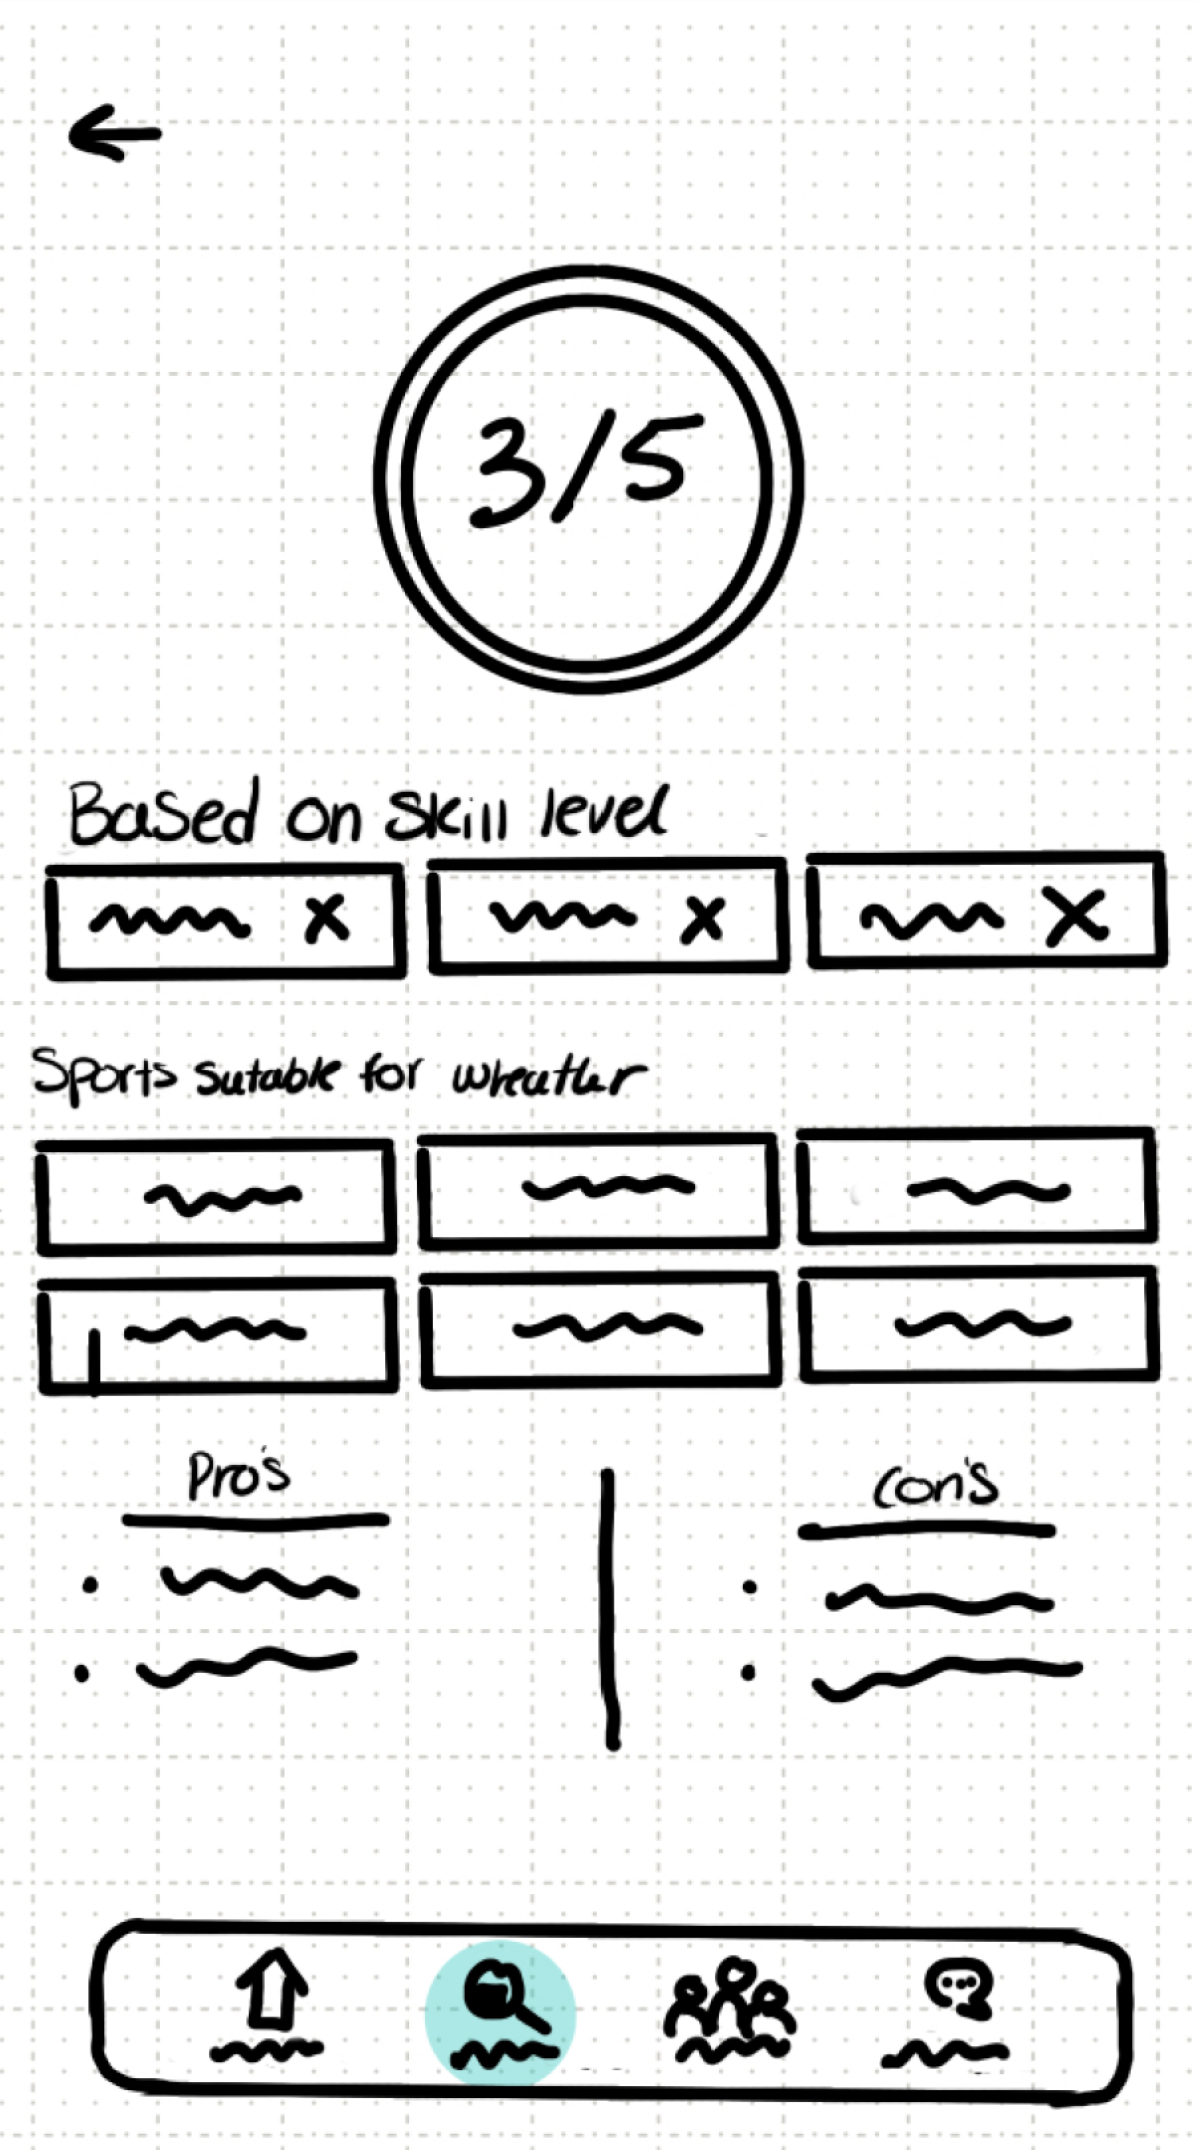 3/5
Based on skill level
x x X
Sports sutable for wheather
Pro's
Con's